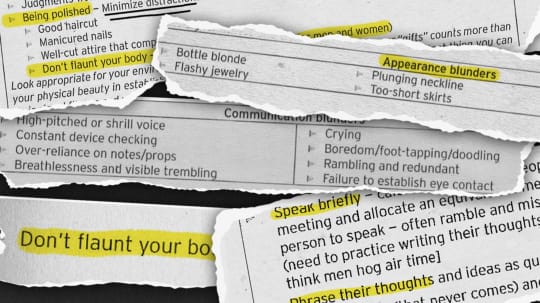 Judgments
Being polished – Minimize distractio
Good haircut
Manicured nails
Well-cut attire that comp
Don't flaunt your body
Look appropriate for your envi
your physical beauty in estab
men and women)
"gifts" counts more than
thing you can
Bottle blonde
Flashy jewelry
Appearance blunders
Plunging neckline
Too-short skirts
Communication blunders
High-pitched or shrill voice
Constant device checking
Over-reliance on notes/props
Breathlessness and visible trembling
Crying
Boredom/foot-tapping/doodling
Rambling and redundant
Failure to establish eye contact
Don't flaunt your bo
Speak briefly –
meeting and allocate an equiv
person to speak – often ramble and mis
(need to practice writing their thoughts
think men hog air time]
Phrase their thoughts and ideas as qu
that never comes) and